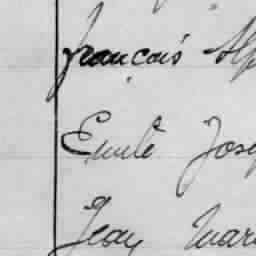 françois Alp
Emile Jose
Jean Mar